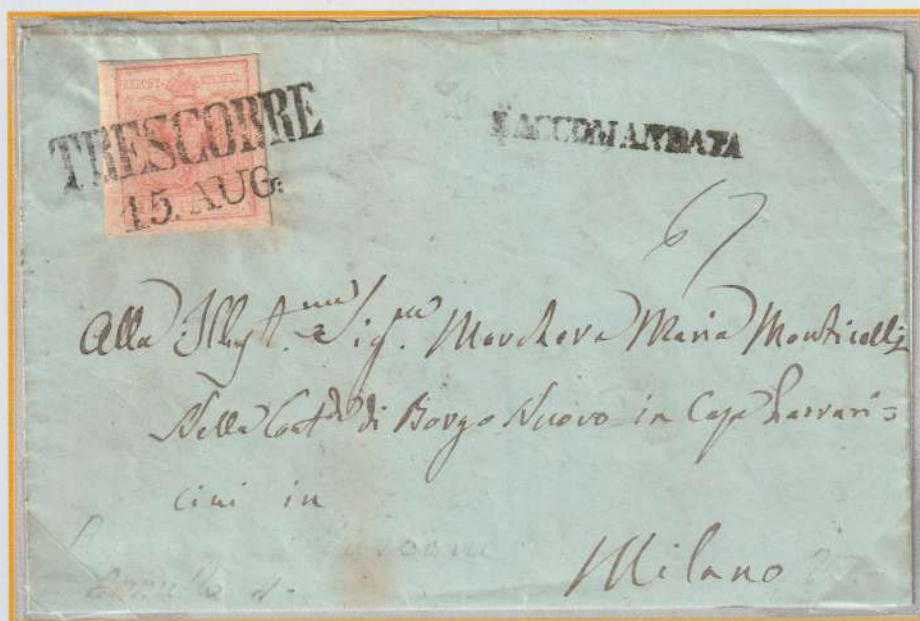 TRESCORRE
15. AUG.
RACCOMANDATA
67
Alla Illust.ma Sig.ra Marchesa Maria Monticelli
Nella Cont.da di Borgo Nuovo in Casa
cini in
Milano